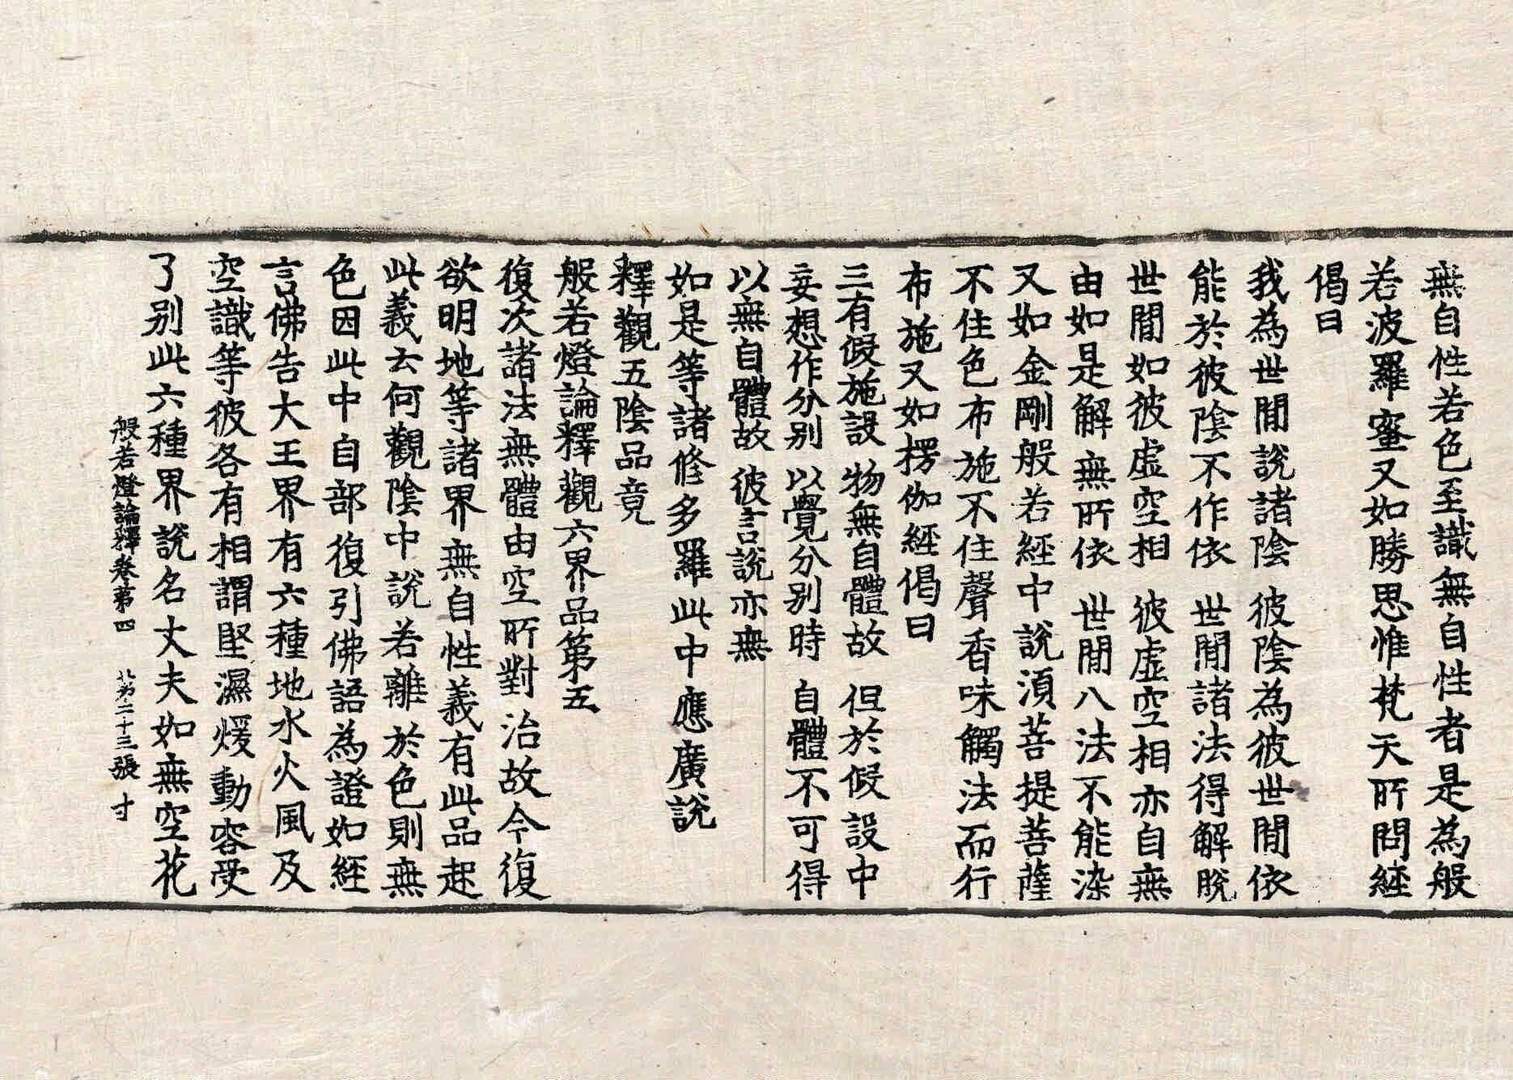 無自性若色至識無自性者是為般
若波羅蜜又如勝思惟梵天所問經
偈曰
我為世間說諸陰 彼陰為彼世間依
能於彼陰不作依 世間諸法得解脫
世間如彼虛空相 彼虛空相亦自無
由如是解無所依 世間八法不能染
又如金剛般若經中說湏菩提菩薩
不住色布施不住聲香味觸法而行
布施又如楞伽經偈曰
三有假施設 物無自體故 但於假設中
妄想作分別 以覺分別時 自體不可得
以無自體故 彼言說亦無
如是等諸修多羅此中應廣說
釋觀五陰品竟
般若燈論釋觀六界品第五
復次諸法無體由空所對治故今復
欲明地等諸界無自性義有此品起
此義云何觀陰中說若離於色則無
色因此中自部復引佛語為證如經
言佛告大王界有六種地水火風及
空識等彼各有相謂堅濕煖動容受
了別此六種界說名丈夫如無空花
般若燈論釋卷第四 二十三張 寸